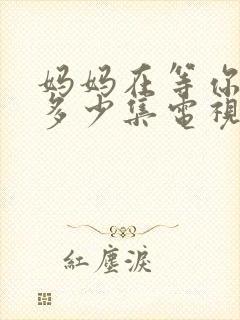 妈妈在等你
多少集電視
紅塵淚